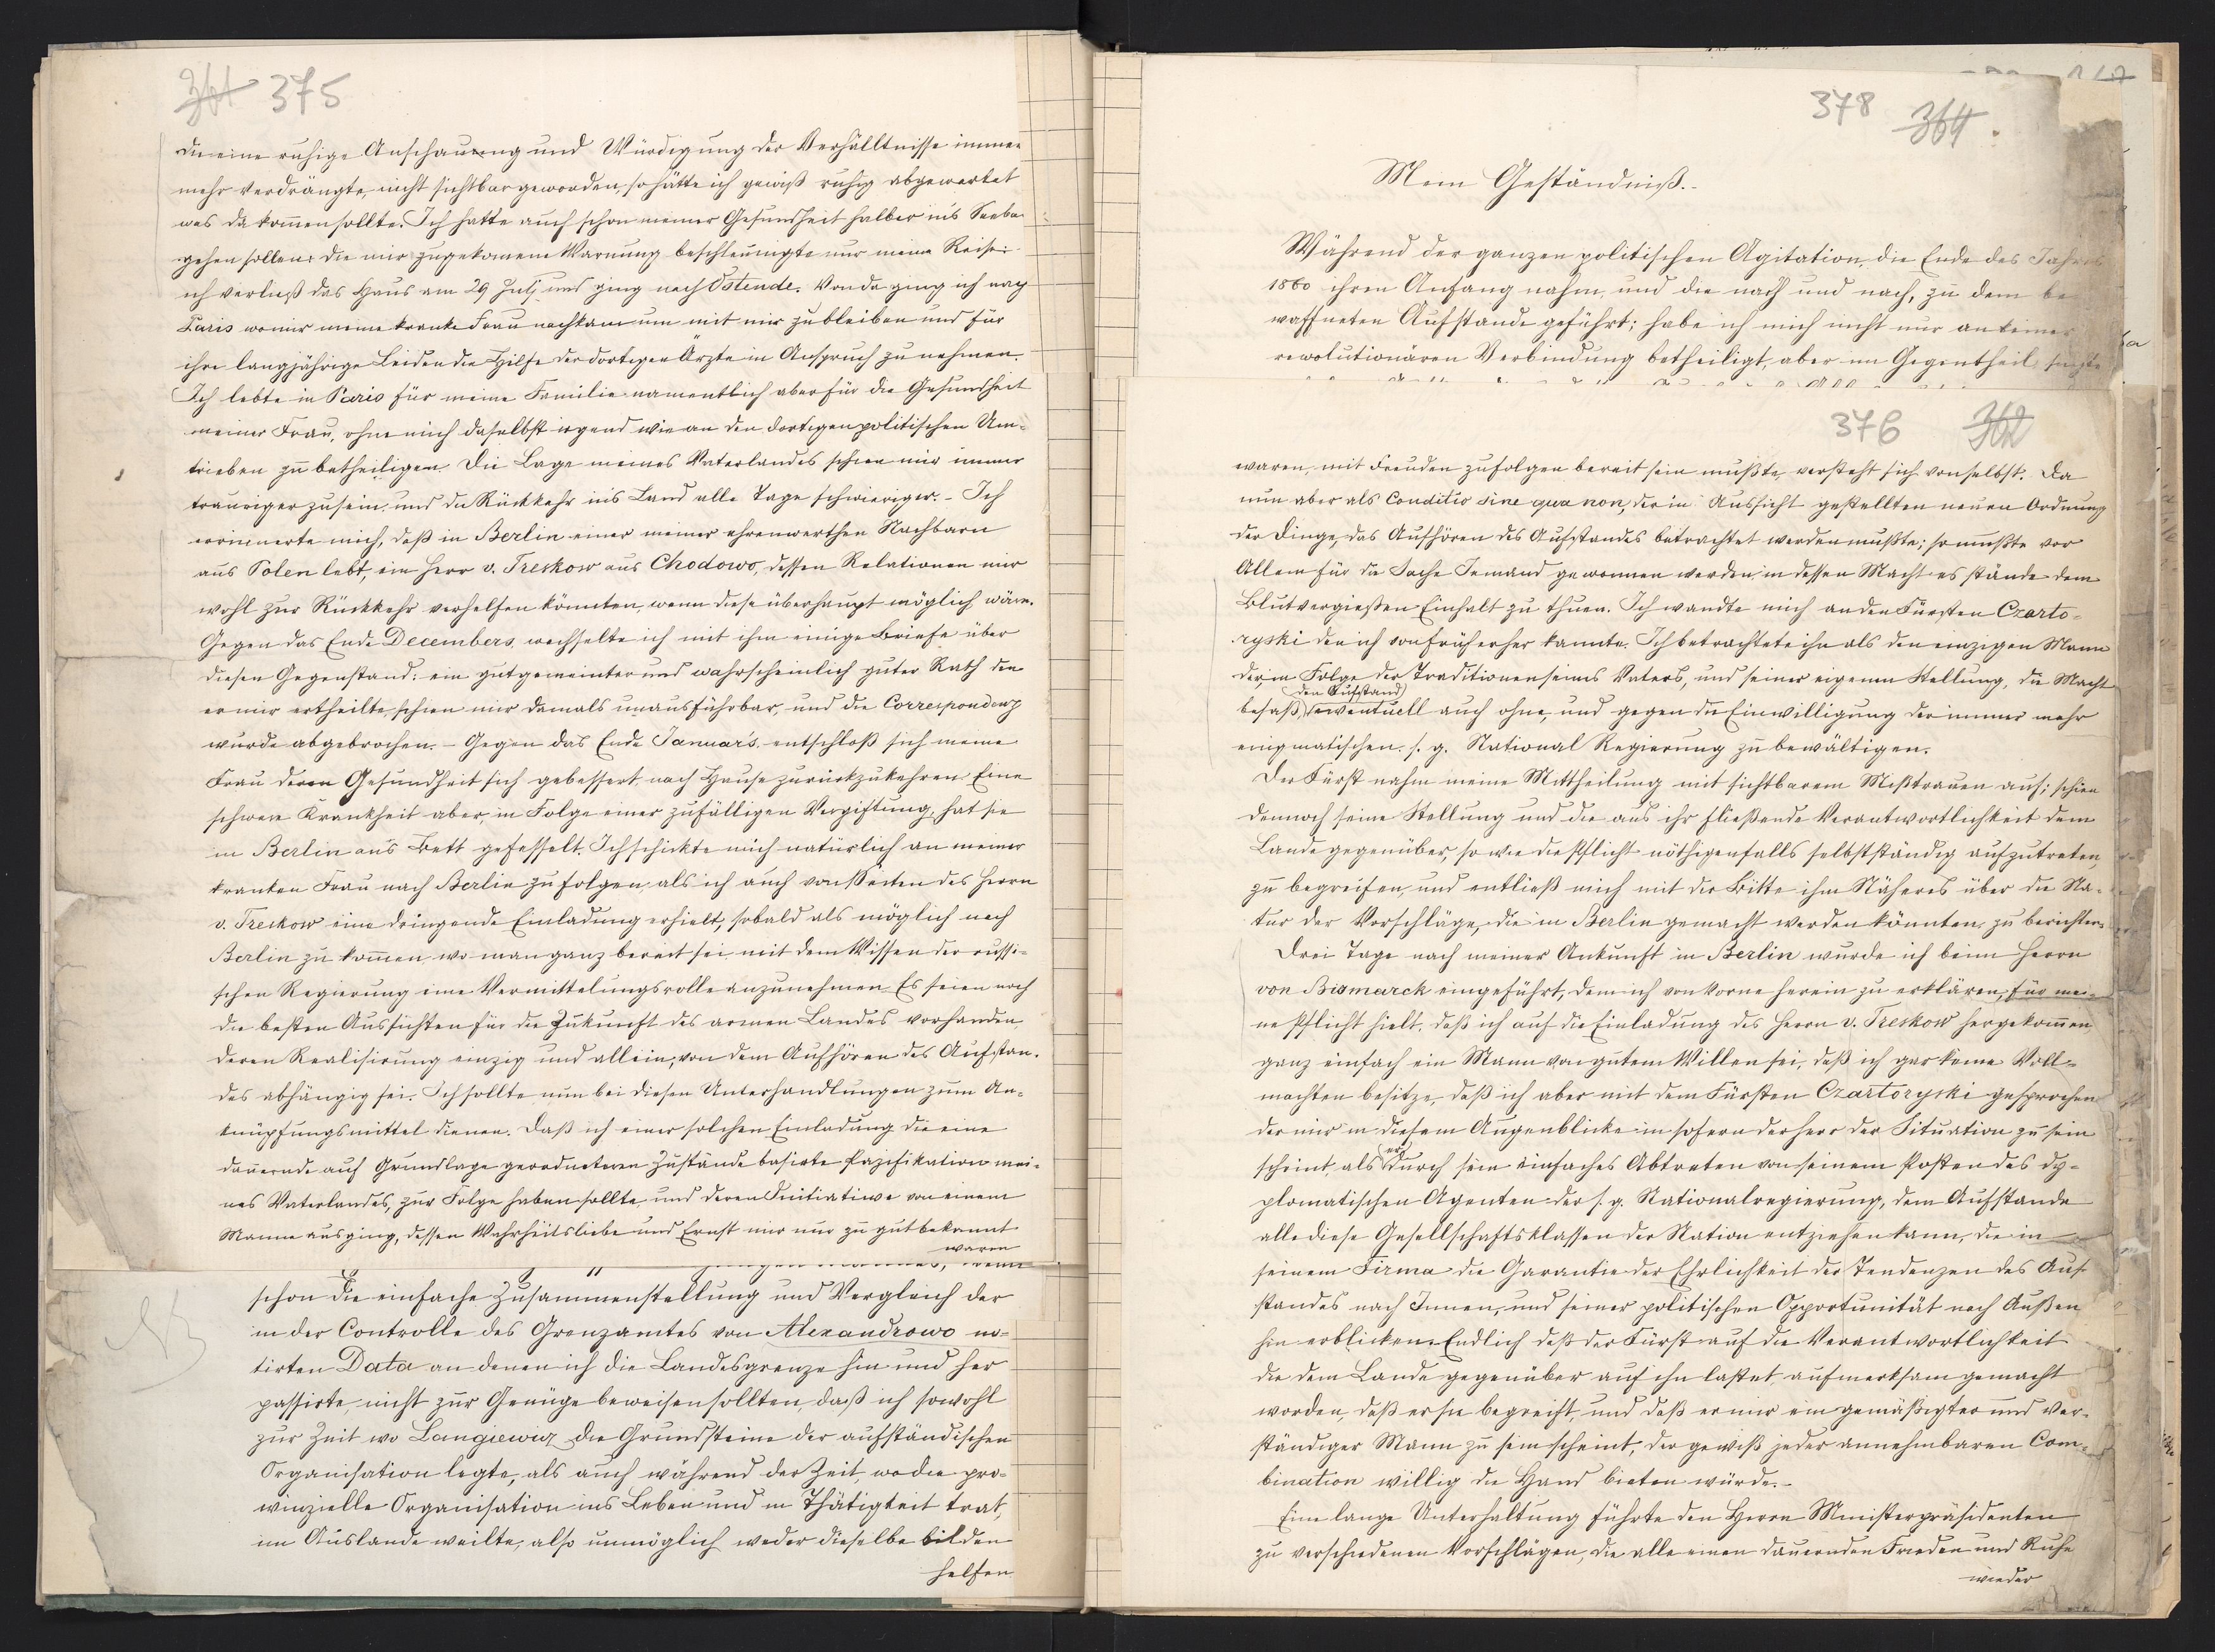 361 375
die eine ruhige Anschauung und Würdigung der Verhälltnisse immer
mehr verdrängte, nicht sichtbar geworden, so hätte ich gewiß ruhig abgewartet
was da kom̄en sollte. Ich hatte auch schon meiner Gesundheit halber in's Seeba
gehen sollen: die mir zugekomene Warnung beschleunigte nur meine Reise:
ich verließ das Haus am 29 Julj und ging nach Ostende. Von da ging ich nach
Paris wo mir meine kranke Frau nachkam um mit mir zu bleiben und für
ihre langjährige Leiden die Hilfe der dortigen Ärzte in Anspruch zu nehmen.
Ich lebte in Paris für meine Familie namentlich aber für die Gesundheit
meiner Frau, ohne mich daselbst irgend wie an den dortigen politischen Um-
trieben zu betheiligen. Die Lage meines Vaterlandes schien mir immer
trauriger zu sein, und die Rückkehr in's Land alle Tage schwieriger. - Ich
errinnerte mich, daß in Berlin einer meiner ehrenwerthen Nachbarn
aus Polen lebt, ein Herr v. Treskow aus Chodowo, dessen Relationen mir
wohl zur Rückkehr verhelfen könnten, wenn diese überhaupt möglich wäre.
Gegen das Ende Decembers wechselte ich mit ihm einige Briefe über
diesen Gegenstand: ein gutgemeinter und wahrscheinlich guter Rath den
er mir ertheilte, schien mir damals unausführbar, und die Correspondenz
wurde abgebrochen. - Gegen das Ende Januar's entschloß sich meine
Frau deren Gesundheit sich gebessert nach Hause zurückzukehren. Eine
schwere Krankheit aber, in Folge einer zufälligen Vergiftung, hat sie
in Berlin an's Bett gefesselt. Ich schickte mich natürlich an meiner
kranken Frau nach Berlin zu folgen, als ich auch von Seiten des Herrn
v. Treskow eine dringende Einladung erhielt, sobald als möglich nach
Berlin zu kom̄en, wo man ganz bereit sei mit dem Wissen der russi-
schen Regierung eine Vermittelungsrolle anzunehmen. Es seien noch
die besten Aussichten für die Zukunft des armen Landes vorhanden,
deren Realisirung einzig und allein, von dem Aufhören des Aufstan-
des abhängig sei. Ich sollte nun bei diesen Unterhandlungen zum An-
knüpfungsmittel dienen. Daß ich einer solchen Einladung die eine
dauernde auf Grundlage geordneteren Zustände basirte Pazifikation mei-
nes Vaterlandes, zur Folge haben sollte und deren Initiative von einem
Manne ausging, dessen Wahrheitsliebe und Ernst mir nur zu gut bekannt
waren
schon die einfache Zusammenstellung und Vergleich der
in der Controlle des Grenzamtes von Alexandrowo no-
tirten Data an denen ich die Landesgrenze hin und her
passirte, nicht zur Genüge beweisen sollten, daß ich sowohl
zur Zeit wo Langiewicz die Grundsteine der aufständischen
Organisation legte, als auch während der Zeit, wo die pro-
winzielle Organisation ins Leben und in Thätigkeit trat,
im Auslande weilte, also unmöglich weder dieselbe bilden
helfen
378 364
Mein Geständniß.-
Während der ganzen politischen Agitation, die Ende des Jahres
1860 ihren Anfang nahm, und die nach und nach, zu dem be-
waffneten Aufstande geführt; habe ich mich nicht nur an keiner
rewolutionären Verbindung betheiligt, aber im Gegentheil
376 362
waren, mit Freuden zu folgen bereit sein mußte, versteht sich von selbst. Da
nun aber als Conditio sine qua non, der in Aussicht gestellten neuen Ordnung
der Dinge, das Aufhören des Aufstandes betrachtet werden mußte; so mußte vor
Allem für die Sache Jemand gewonnen werden, in dessen Macht es stände dem
Blutvergießen Einhalt zu thuen. Ich wandte mich an den Fürsten Czarto-
ryski den ich von früherher kannte. Ich betrachtete ihn als den einzigen Mann
der, in Folge der Traditionen seines Vaters, und seiner eigenen Stellung, die Macht
(den Aufstand)
besaß, ewentuell auch ohne, und gegen die Einwilligung der immer mehr
enigmatischen s. g. National Regierung zu bewältigen.
Der Fürst nahm meine Mittheilung mit sichtbarem Mißtrauen auf; schien
dennoch seine Stellung und die aus ihr fließende Verantwortlichkeit dem
Lande gegenüber, so wie die Pflicht nöthigenfalls selbstständig aufzutreten,
zu begreifen, und entließ mich mit der Bitte ihm Näheres über die Na-
tur der Vorschläge, die in Berlin gemacht werden könnten, zu berichten.
Drei Tage nach meiner Ankunft in Berlin wurde ich beim Herrn
von Bismarck eingeführt, dem ich von vorne herein zu erklären, für mei-
ne Pflicht hielt, daß ich auf die Einladung des Herrn v. Treskow hergekom̄en,
ganz einfach ein Mann von gutem Willen sei, daß ich gar keine Voll-
machten besitze, daß ich aber mit dem Fürsten Czartoryski gesprochen
der mir in diesem Augenblicke in sofern der Herr der Situation zu sein
scheint, als er durch sein einfaches Abtreten von seinem Posten des dy-
plomatischen Agenten der s. g. Nationalregierung, dem Aufstande
alle diese Gesellschaftsklassen der Nation entziehen kann, die in
seinem Firma die Garantie der Ehrlichkeit der Tendenzen des Auf-
standes nach Innen, und seiner politischen Opportunität nach Außen
hin erblicken. Endlich daß der Fürst auf die Verantwortlichkeit
die dem Lande gegenüber auf ihn lastet, aufmerksam gemacht
worden, daß er sie begreift, und daß er mir ein gemäßigter und ver-
ständiger Mann zu sein scheint, der gewiß jeder annehmbaren Com-
bination willig die Hand bieten würde. -
Eine lange Unterhaltung führte den Herrn Ministerpräsidenten
zu verschiedenen Vorschlägen, die alle einen dauernden Frieden und Ruhe
wieder